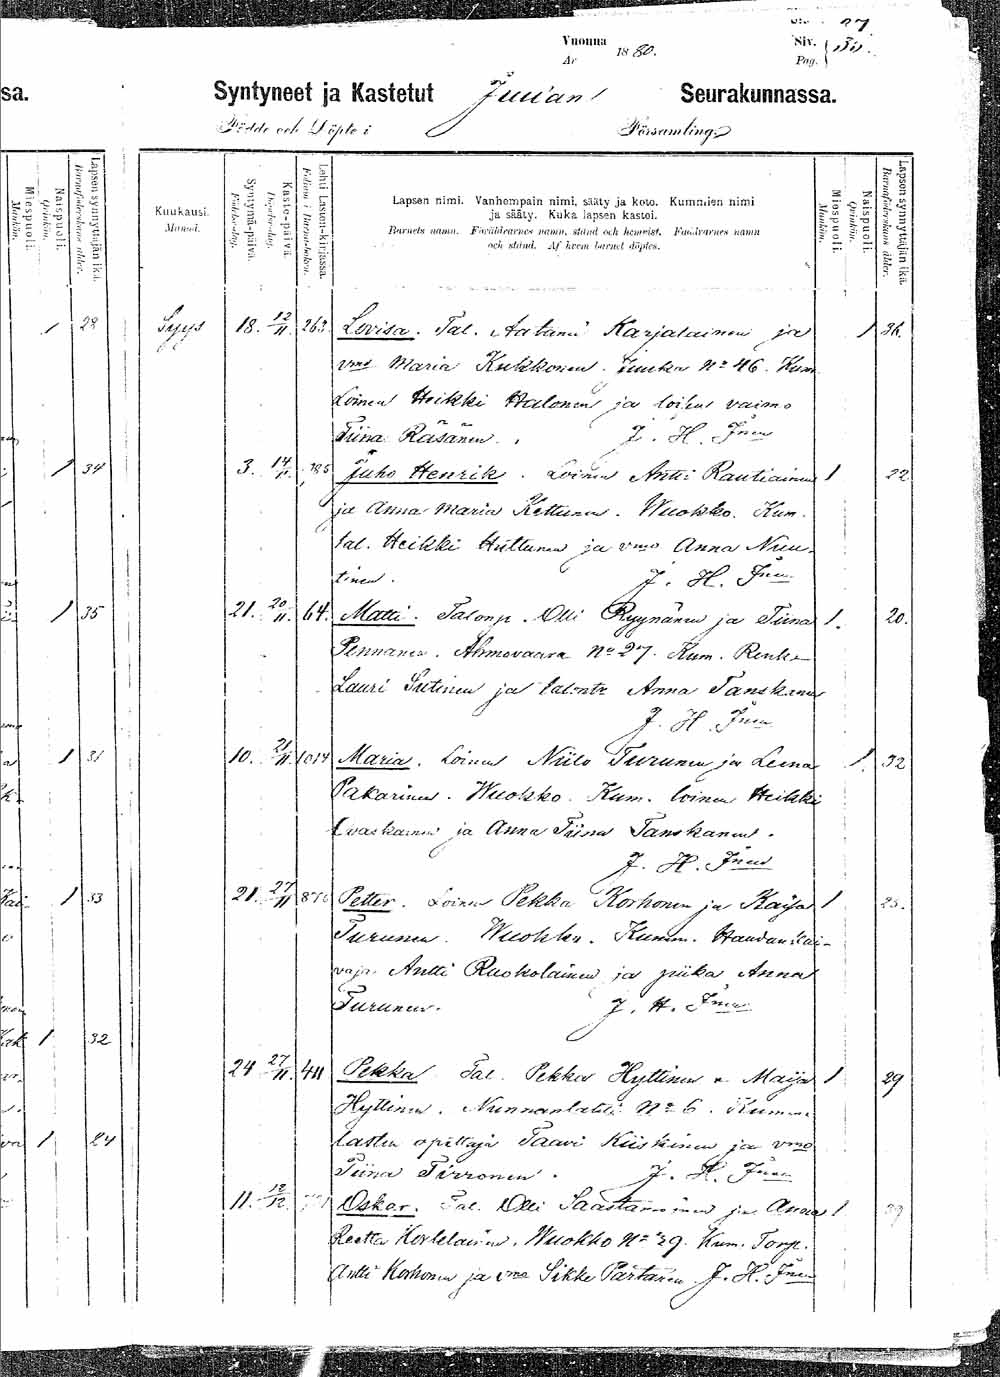 27
Vuonna 1880. Siv.
År Pag.
sa. Syntyneet ja Kastetut Juuan Seurakunnassa.
Födde och Döpte i Församling.
Miespuoli. Mankön. Naispuoli. Qvinkön. Lapsen synnyttäjän ikä. Barnaföderskans ålder.
Kuukausi. Månad. Syntymä-päivä. Födelse-dag. Kaste-päivä. Dopelse-dag. Lehti Lasten-kirjassa. Folium i Barna-boken.
Lapsen nimi. Vanhempain nimi, sääty ja koto. Kummien nimi
ja sääty. Kuka lapsen kastoi.
Barnets namn. Föräldrarnes namn, stånd och hemvist. Faddrarnes namn
och stånd. Af hvem barnet döptes.
Miespuoli. Mankön. Naispuoli. Qvinkön. Lapsen synnyttäjän ikä. Barnaföderskans ålder.
1 28 Syys 18. 12/11. 263 Lovisa. Tal. Aatami Karjalainen ja 1 36.
vmo Maria Kukkonen. Juuka No 46. Kum.
Loinen Heikki Halonen ja loisen vaimo
Tiina Räsänen. J. H. Snen
1 34 3. 14/11. 785 Juho Henrik. Loinen Antti Rautiainen 1 22
ja Anna Maria Kettunen. Wuokko. Kum.
tal. Heikki Huttunen ja vmo Anna Nuu-
tinen. J. H. Snen
1 35 21. 20/11. 64. Matti. Talonp. Olli Ryynänen ja Tiina 1. 20.
Pennanen. Ahmovaara No 27. Kum. Renki
Lauri Sutinen ja talontr Anna Tanskanen
J. H. Snen
1 31 10. 21/11. 1014 Maria. Loinen Niilo Turunen ja Leena 1. 32
Pakarinen. Wuokko. Kum. loinen Heikki
Ovaskainen ja Anna Tiina Tanskanen.
J. H. Snen
1 33 21. 27/11 Petter. Loinen Pekka Korhonen ja Kaisa 1 25.
Turunen. Wuokko. Kumm. Haudankai-
vaja Antti Ruokolainen ja piika Anna
Turunen. J. H. Snen
1 32
24 27/11. 411 Pekka Tal. Pekka Hyttinen & Maija 1 29
Hyttinen. Nunnanlahti No 6. Kumm.
1 24 lasten opettaja Taavi Kiiskinen ja vmo
Tiina Tirronen. J. H. Snen
11. 12/12. Oskar. Tal. Olli Saastamoinen ja Anna 1
Reetta Kortelainen. Wuokko No 29. Kum. Torp.
Antti Korhonen ja vmo Sikke Partanen J. H. Snen